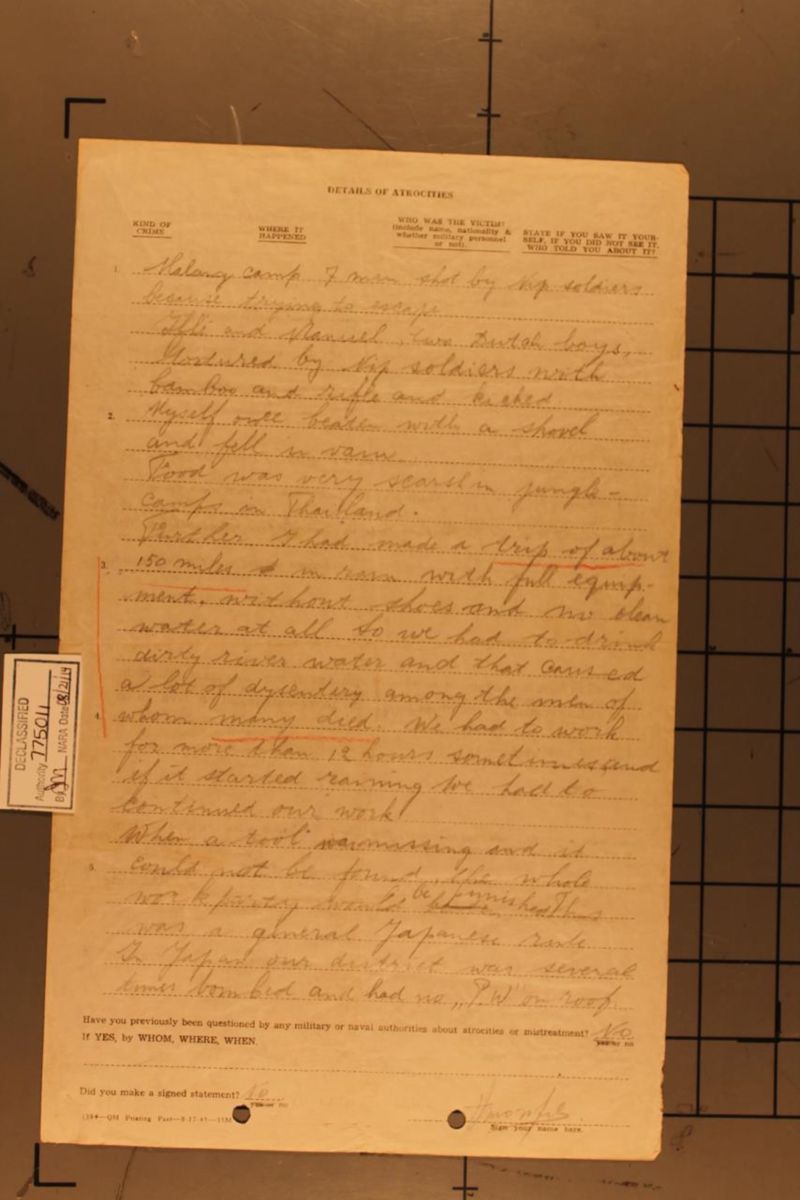 DETAILS OF ATROCITIES
KIND OF CRIME
WHERE IT HAPPENED
WHO WAS THE VICTIM? (include name, nationality & whether military personnel or not).
STATE IF YOU SAW IT YOURSELF. IF YOU DID NOT SEE IT, WHO TOLD YOU ABOUT IT?
1. Malang camp 7 men shot by Nip soldiers
because trying to escape
and Manuel, two Dutch boys,
by Nip soldiers with
bamboo and rifle and kicked
2. Myself once beaten with a shovel
and fell in
Food was very in jungle-
camps in Thailand.
Further I had made a trip of about
3. 150 miles in rain with full equip-
ment, without shoes and no clean
water at all so we had to drink
dirty river water and that caused
a lot of dysentery among the men of
4. whom many died. We had to work
for more than 12 hours sometimes and
if it started raining we had to
continued our work
When a tool was missing and it
5. could not be found, the whole
workparty would be punished This
was a general Japanese rule
In Japan our district was several
times bombed and had no "P.W" on roof.
Have you previously been questioned by any military or naval authorities about atrocities or mistreatment? No
yes or no
If YES, by WHOM, WHERE, WHEN.
Did you make a signed statement? No
yes or no
Sign your name here.
DECLASSIFIED
Authority 775011
By NARA Date 08/21/14